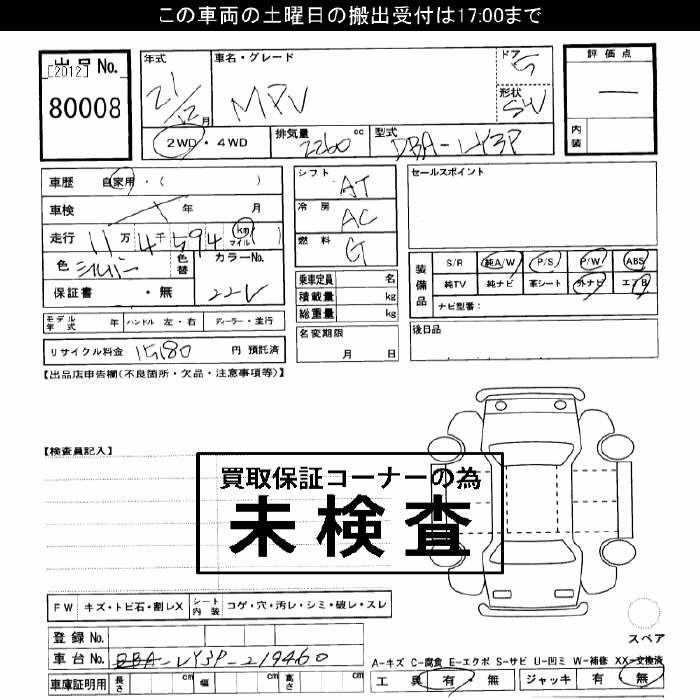 この車両の土曜日の搬出受付は17:00まで
出品No.
[2012]
80008
年式 21/12月
車名・グレード MPV
ドア 5
形状 SW
評価点 —
内装
2WD・4WD
排気量 2260 cc
型式 DBA-LY3P
車歴 自家用・( )
車検 年 月
走行 11万4千594 km マイル
色 シルバー 色替 カラーNo. 22V
保証書 ・無
モデル年式 年 ハンドル 左・右 ディーラー・並行
リサイクル料金 15180 円 預託済
シフト AT
冷房 AC
燃料 G
乗車定員 名
積載量 kg
総重量 kg
名変期限
月 日
セールスポイント
装備品 S/R 純A/W P/S P/W ABS
純TV 純ナビ 革シート 外ナビ エアB
ナビ型番:
後日品
【出品店申告欄(不良箇所・欠品・注意事項等)】
【検査員記入】
買取保証コーナーの為
未検査
FW キズ・トビ石・割レX シート内装 コゲ・穴・汚レ・シミ・破レ・スレ
スペア
登録No.
車台No. DBA-LY3P-219460
車庫証明用 長さ cm 幅 cm 高さ cm
A-キズ C-腐食 E-エクボ S-サビ U-凹ミ W-補修 XX-交換済
工具 有・無 ジャッキ 有・無